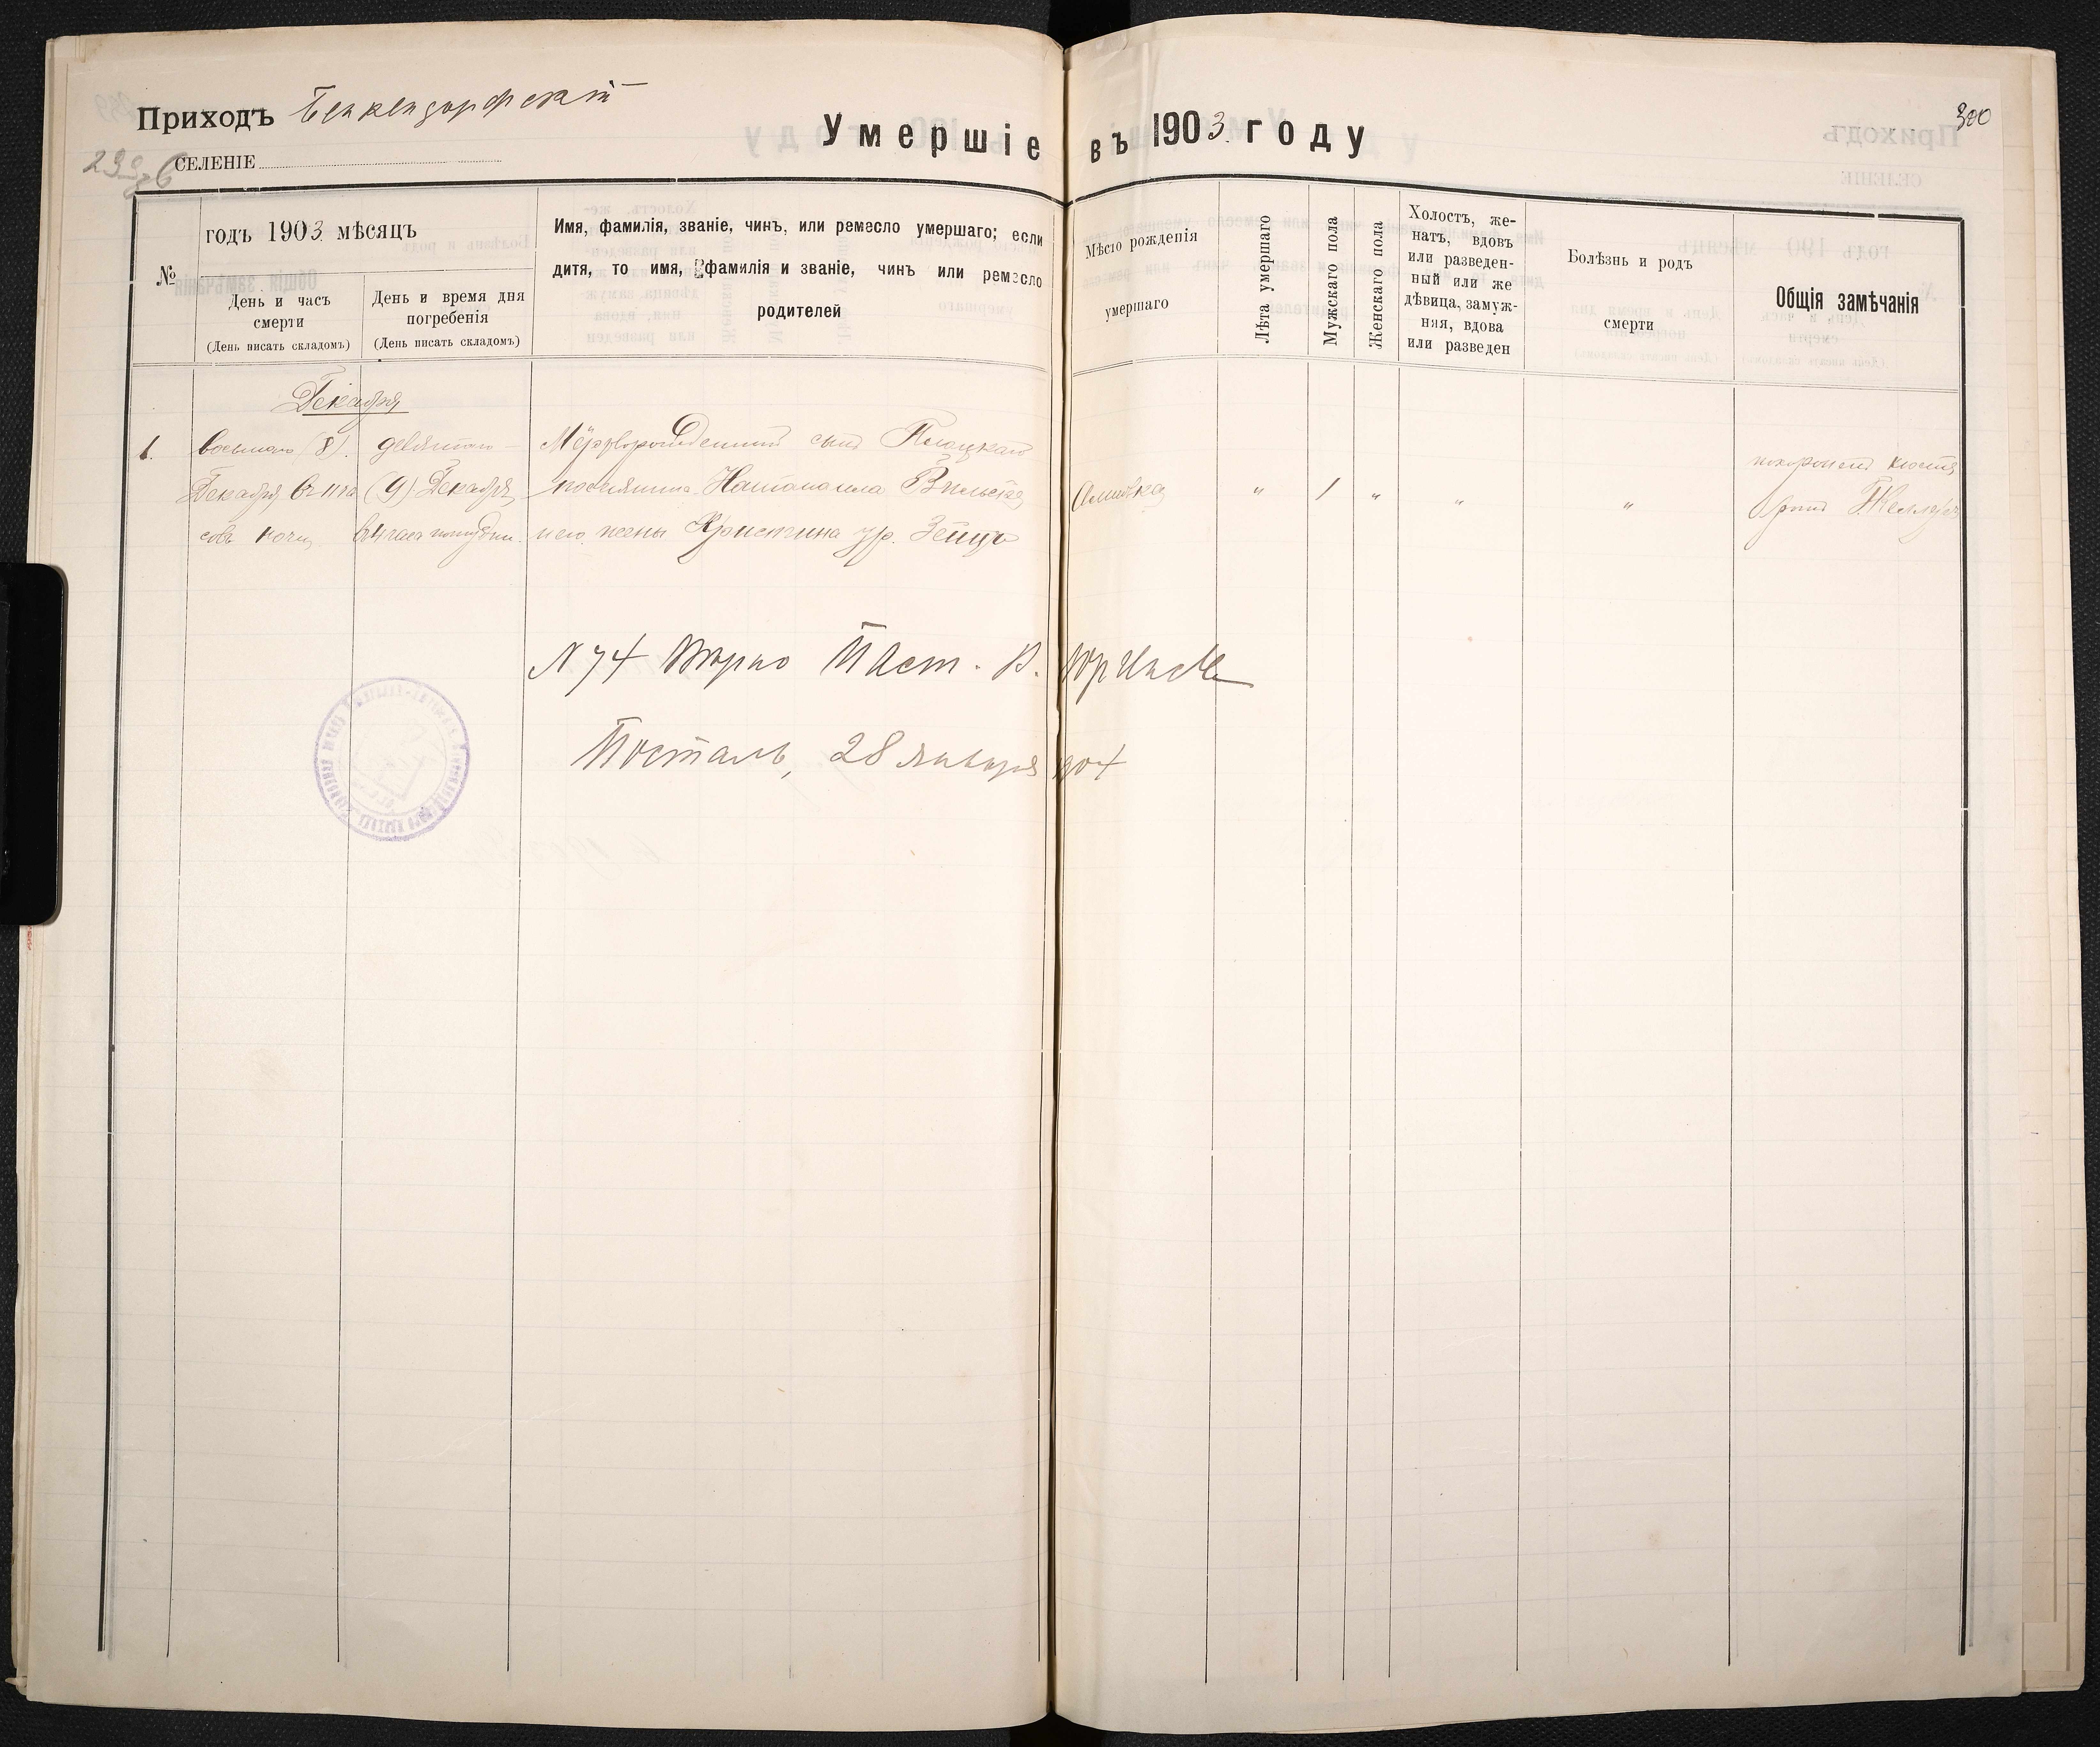 Приходъ Бенкендорфскій
Умершіе въ 1903 году
300
СЕЛЕНІЕ
№
годъ 1903 мѣсяцъ
День и часъ
смерти
(День писать складомъ)
День и время дня
погребенія
(День писать складомъ)
Имя, фамилія, званіе, чинъ, или ремесло умершаго; если
дитя, то имя, фамилія и званіе, чинъ или ремесло
родителей
Мѣсто рожденія
умершаго
Лѣта умершаго
Мужскаго пола
Женскаго пола
Холостъ, же-
натъ, вдовъ
или разведен-
ный или же
дѣвица, замуж-
няя, вдова
или разведен
Болѣзнь и родъ
смерти
Общія замѣчанія
Декабря
1.
восьмого (8).
Декабря въ 11 ча
совъ ночи
девятаго
(9) Декабря
въ 4 часа пополудни.
Мёртворожденный сынъ Плоцкаго
поселянина Натанаила
и его жены Кристина ур. Зейцъ
" 1 " " "
похороненъ
№ 74 Вѣрно Паст.
Посталь, 28 января 904